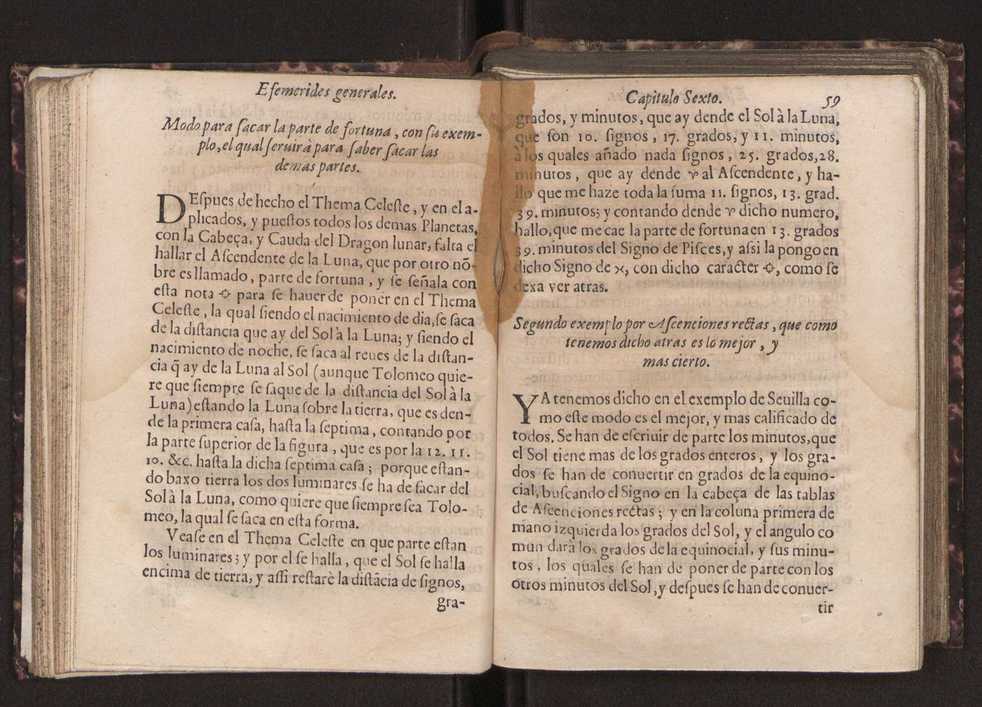 Efemerides generales.
Modo para ſacar la parte de fortuna, con ſu exem-
plo, el qual ſeruirà para ſaber ſacar las
demas partes.
DEſpues de hecho el Thema Celeſte, y en el a-
plicados, y pueſtos todos los demas Planetas,
con la Cabeça, y Cauda del Dragon lunar, falta el
hallar el Aſcendente de la Luna, que por otro nõ-
bre es llamado, parte de fortuna, y ſe ſeñala con
eſta nota ⊕ para ſe hauer de poner en el Thema
Celeſte, la qual ſiendo el nacimiento de dia, ſe ſaca
de la diſtancia que ay del Sol à la Luna; y ſiendo el
nacimiento de noche, ſe ſaca al reues de la diſtan-
cia q̃ ay de la Luna al Sol (aunque Tolomeo quie-
re que ſiempre ſe ſaque de la diſtancia del Sol à la
Luna) eſtando la Luna ſobre la tierra, que es den-
de la primera caſa, haſta la ſeptima, contando por
la parte ſuperior de la figura, que es por la 12. 11.
10. &c. haſta la dicha ſeptima caſa; porque eſtan-
do baxo tierra los dos luminares ſe ha de ſacar del
Sol à la Luna, como quiere que ſiempre ſea Tolo-
meo, la qual ſe ſaca en eſta forma.
Veaſe en el Thema Celeſte en que parte eſtan
los luminares; y por el ſe halla, que el Sol ſe halla
encima de tierra, y aſſi reſtarè la diſtãcia de ſignos,
gra-
Capitulo Sexto. 59
grados, y minutos, que ay dende el Sol à la Luna,
que ſon 10. ſignos, 17. grados, y 11. minutos,
à los quales añado nada ſignos, 25. grados, 28.
minutos, que ay dende ♈ al Aſcendente, y ha-
llo que me haze toda la ſuma 11. ſignos, 13. grad.
39. minutos; y contando dende ♈ dicho numero,
hallo, que me cae la parte de fortuna en 13. grados
39. minutos del Signo de Piſces, y aſsi la pongo en
dicho Signo de ♓, con dicho caracter ⊕, como ſe
dexa ver atras.
Segundo exemplo por Aſcenciones rectas, que como
tenemos dicho atras es lo mejor, y
mas cierto.
YA tenemos dicho en el exemplo de Seuilla co-
mo eſte modo es el mejor, y mas calificado de
todos. Se han de eſcriuir de parte los minutos, que
el Sol tiene mas de los grados enteros, y los gra-
dos ſe han de conuertir en grados de la equino-
cial, buſcando el Signo en la cabeça de las tablas
de Aſcenciones rectas; y en la coluna primera de
mano izquierda los grados del Sol, y el angulo co
mun darà los grados de la equinocial, y sus minu-
tos, los quales ſe han de poner de parte con los
otros minutos del Sol, y deſpues ſe han de conuer-
tir